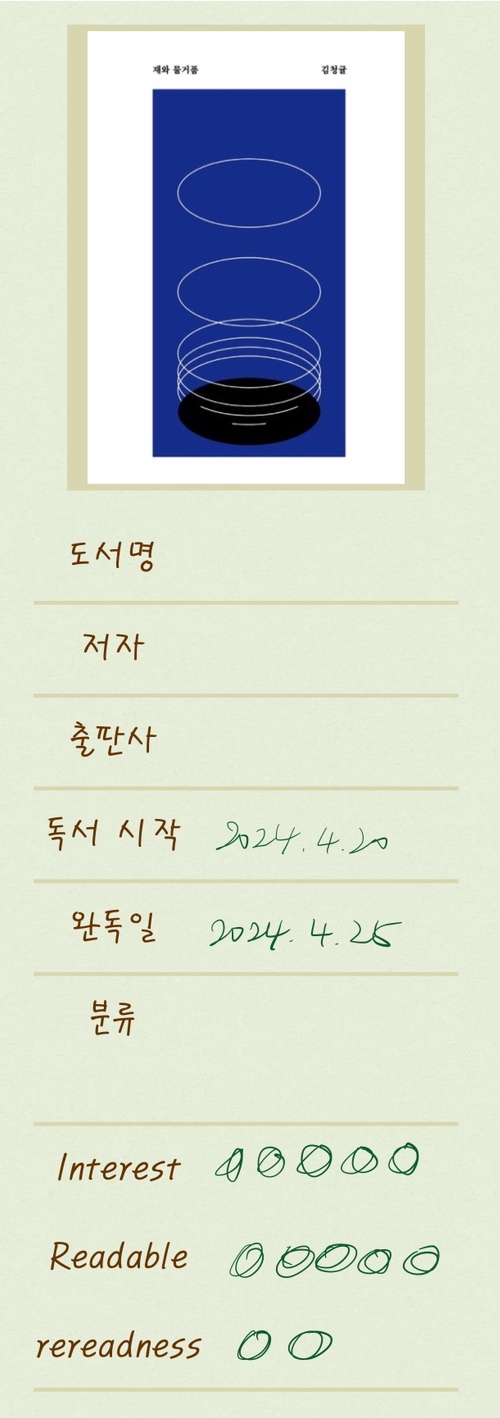 재와 물거품 김청귤
도서명
저자
출판사
독서 시작 2024.4.20
완독일 2024.4.25
분류
Interest
Readable
rereadness